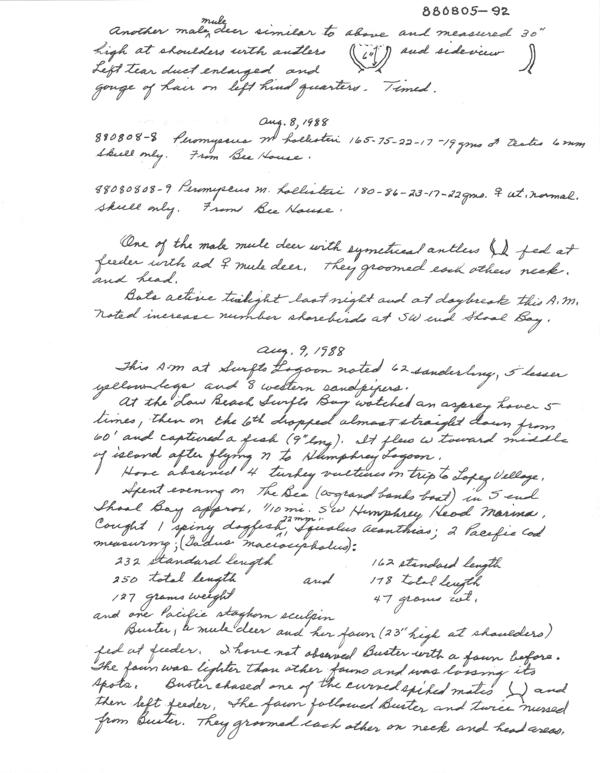 880805-92
Another male mule deer similar to above and measured 30"
high at shoulders with antlers 6" and sideview
Left tear duct enlarged and
gouge of hair on left hind quarters. Timed.
Aug. 8, 1988
880808-8 Peromyscus m hollisteri 165-75-22-17-19 gms ♂ testes 6 mm
Skull only. From Bee House.
88080808-9 Peromyscus m. hollisteri 180-86-23-17-22 gms. ♀ ut. normal.
Skull only. From Bee House.
One of the male mule deer with symetrical antlers fed at
feeder with ad ♀ mule deer. They groomed each others neck.
and head.
Bats active twilight last night and at daybreak this A.M.
Noted increase number shorebirds at SW end Shoal Bay.
Aug. 9, 1988
This AM at Swifts Lagoon noted 62 sanderling, 5 lesser
yellow-legs and 8 western sandpipers.
At the Low Beach Swifts Bay watched an osprey hover 5
times, then on the 6th dropped almost straight down from
60' and captured a fish (9" long). It flew W toward middle
of island after flying N to Humphrey Lagoon.
Have observed 4 turkey vultures on trip to Lopez Village.
Spent evening on The Bea (a grand banks boat) in S end
Shoal Bay approx. 1/10 mi. SW Humphrey Head Marina.
Caught 1 spiny dogfish, 22 mm Squalus acanthias; 2 Pacific Cod
measuring; (Gadus macrocephalus):
232 standard length 162 standard length
250 total length and 178 total length
127 grams weight 47 grams wt.
and one Pacific staghorn sculpin
Buster, a mule deer and her fawn (23" high at shoulders)
fed at feeder. I have not observed Buster with a fawn before.
The fawn was lighter than other fawns and was loosing its
spots. Buster chased one of the curved spiked mates and
then left feeder. The fawn followed Buster and twice nursed
from Buster. They groomed each other on neck and head areas.